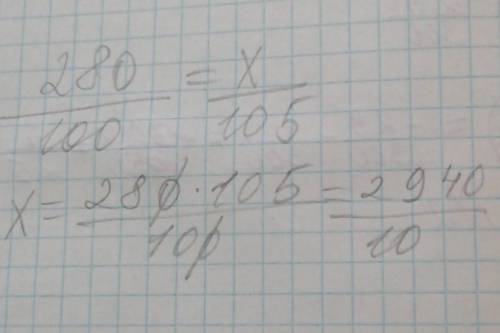 280/100 = X/105
X = 280·105/100 = 2940/10